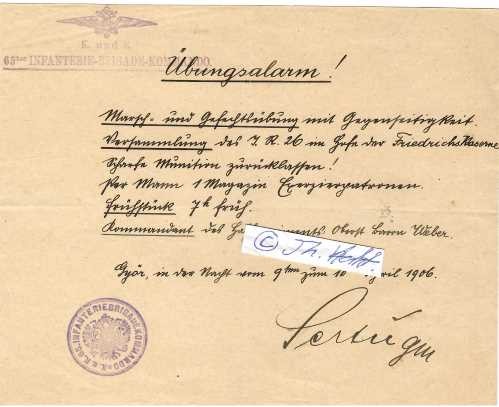 K. und K.
65ster INFANTERIE-BRIGADE-KOMMANDO.
Übungsalarm!
Marsch- und Gefechtsübung mit Gegenseitigkeit.
Versammlung des I. R. 26 im Hofe der Friedrichskaserne
Scharfe Munition zurücklassen!
Per Mann 1 Magazin Exerzierpatronen.
Frühstück 7h früh.
Kommandant des Oberst Baron Weber.
©
Győr, in der Nacht vom 9ten zum 10 April 1906.
K. u. K. 65. INFANTERIEBRIGADEKOMMANDO